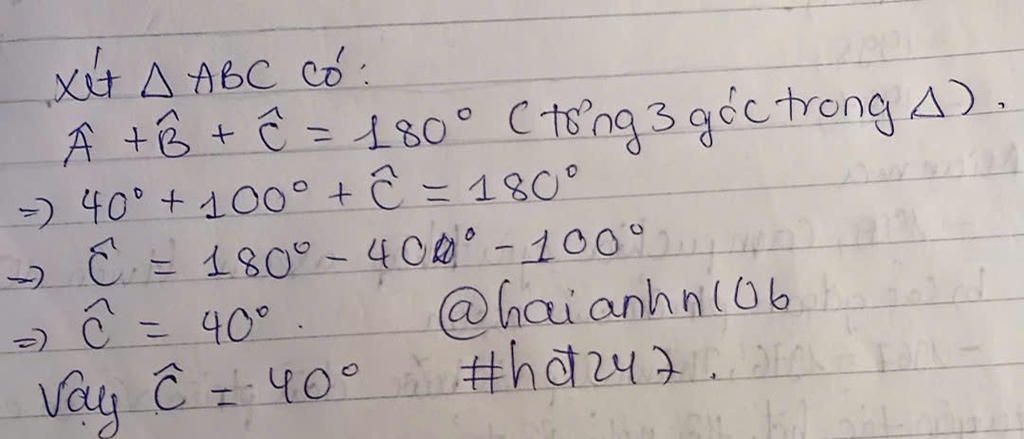 Xét Δ ABC có:
Â + B̂ + Ĉ = 180° (tổng 3 góc trong Δ).
=> 40° + 100° + Ĉ = 180°
=> Ĉ = 180° - 40° - 100°
=> Ĉ = 40°. @haianhn106
Vậy Ĉ = 40° #hđ247.